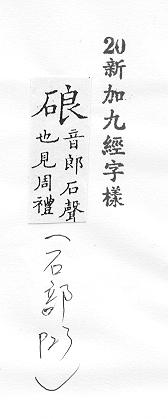 20新加九經字樣
硠音郎石聲
也見周禮
(石部P23)